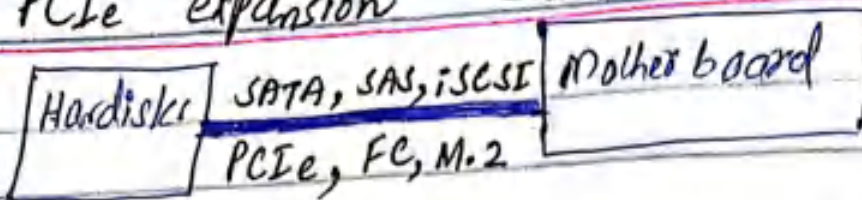 PCIe expansion
Hardisks
SATA, SAS, iSCSI
PCIe, FC, M.2
Mother board